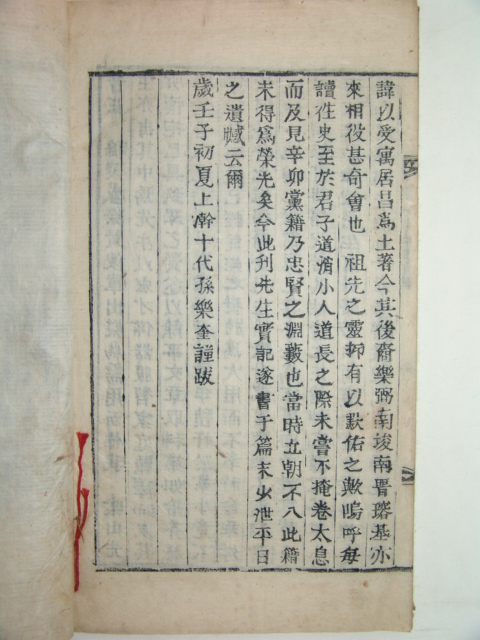 諱以愛寓居昌爲土著今其後裔樂弼南埈南晋瑢基亦
來相役甚奇會也 祖先之靈抑有以默佑之歟嗚呼每
讀徃史至於君子道消小人道長之際未嘗不掩卷太息
而及見辛卯黨籍乃忠賢之淵藪也當時立朝不入此籍
未得爲榮光矣今此刊先生實記遂書于篇末少泄平日
之遺憾云爾
歲壬子初夏上澣十代孫樂奎謹跋